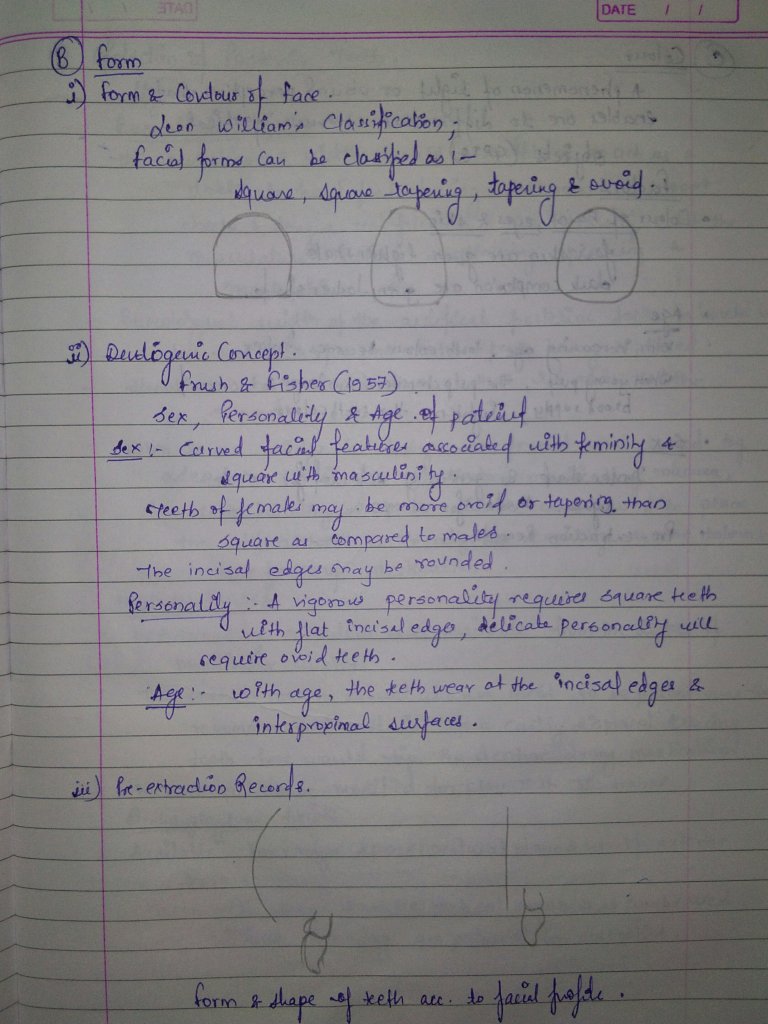 DATE / /
B form
i) form & Contour of face.
Leon William's Classification;
facial forms can be classified as :-
square, square tapering, tapering & ovoid.
ii) Dentogenic Concept.
frush & fisher (1957)
sex, Personality & Age of patient
Sex :- Curved facial features associated with feminity &
square with masculinity.
teeth of females may be more ovoid or tapering than
square as compared to males.
The incisal edges may be rounded.
Personality :- A vigorous personality requires square teeth
with flat incisal edges, delicate personality will
require ovoid teeth.
Age :- with age, the teeth wear at the incisal edges &
interproximal surfaces.
iii) Pre-extraction Records.
form & shape of teeth acc. to facial profile.